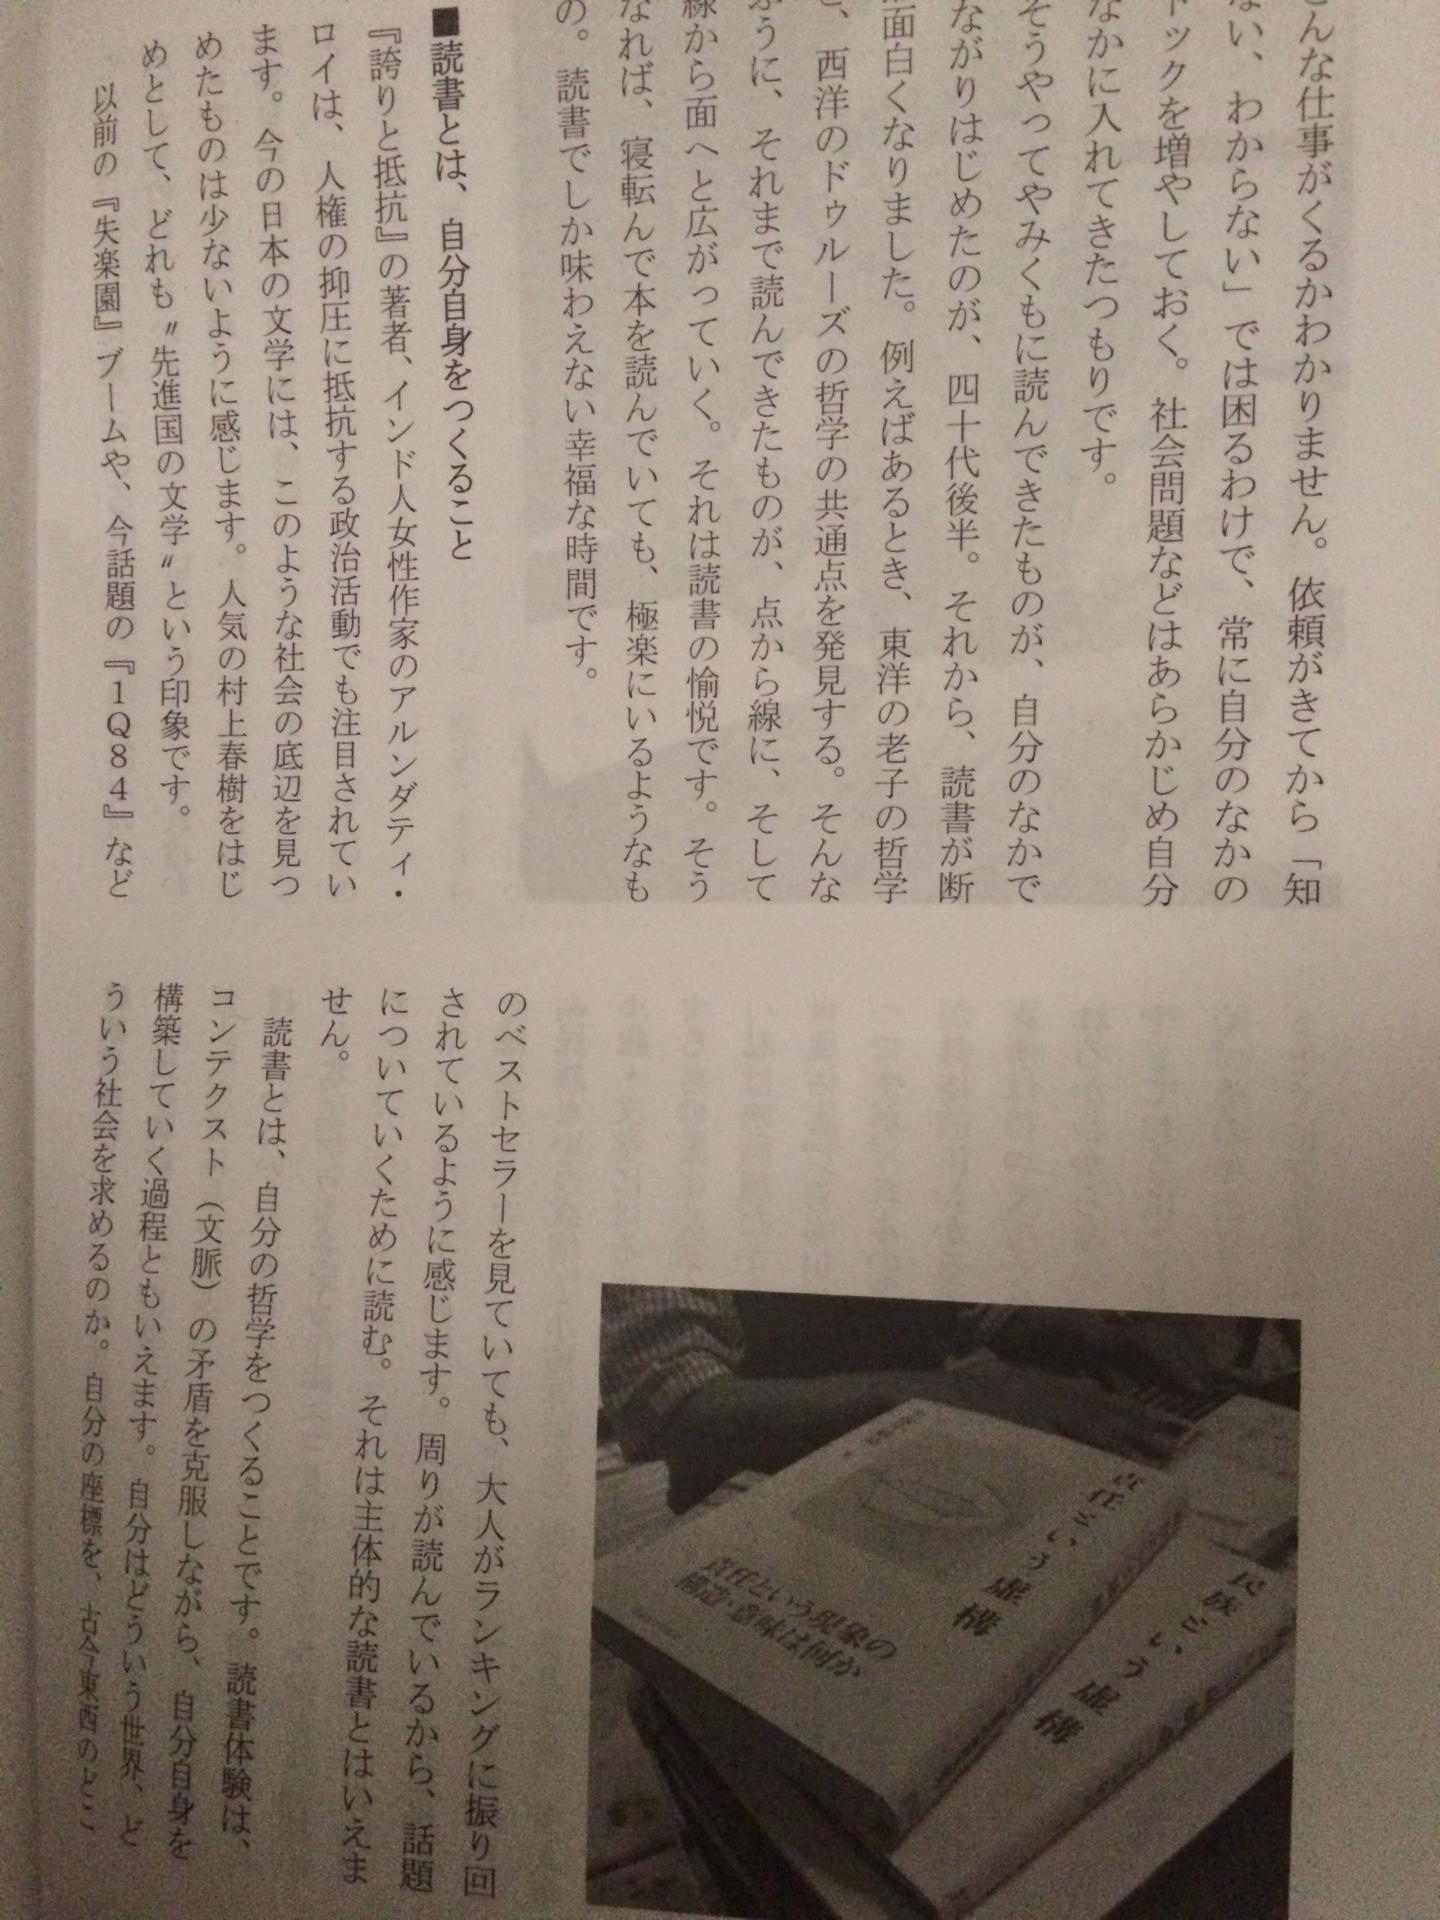 んな仕事がくるかわかりません。依頼がきてから「知
ない、わからない」では困るわけで、常に自分のなかの
トックを増やしておく。社会問題などはあらかじめ自分
なかに入れてきたつもりです。
そうやってやみくもに読んできたものが、自分のなかで
ながりはじめたのが、四十代後半。それから、読書が断
面白くなりました。例えばあるとき、東洋の老子の哲学
、西洋のドゥルーズの哲学の共通点を発見する。そんな
ふうに、それまで読んできたものが、点から線に、そして
線から面へと広がっていく。それは読書の愉悦です。そう
なれば、寝転んで本を読んでいても、極楽にいるようなも
の。読書でしか味わえない幸福な時間です。
■読書とは、自分自身をつくること
『誇りと抵抗』の著者、インド人女性作家のアルンダティ・
ロイは、人権の抑圧に抵抗する政治活動でも注目されてい
ます。今の日本の文学には、このような社会の底辺を見つ
めたものは少ないように感じます。人気の村上春樹をはじ
めとして、どれも〝先進国の文学〟という印象です。
以前の『失楽園』ブームや、今話題の『1Q84』など
のベストセラーを見ていても、大人がランキングに振り回
されているように感じます。周りが読んでいるから、話題
についていくために読む。それは主体的な読書とはいえま
せん。
読書とは、自分の哲学をつくることです。読書体験は、
コンテクスト（文脈）の矛盾を克服しながら、自分自身を
構築していく過程ともいえます。自分はどういう世界、ど
ういう社会を求めるのか。自分の座標を、古今東西のどこ
責任という虚構
責任という現象の
構造・意味は何か
民族という虚構